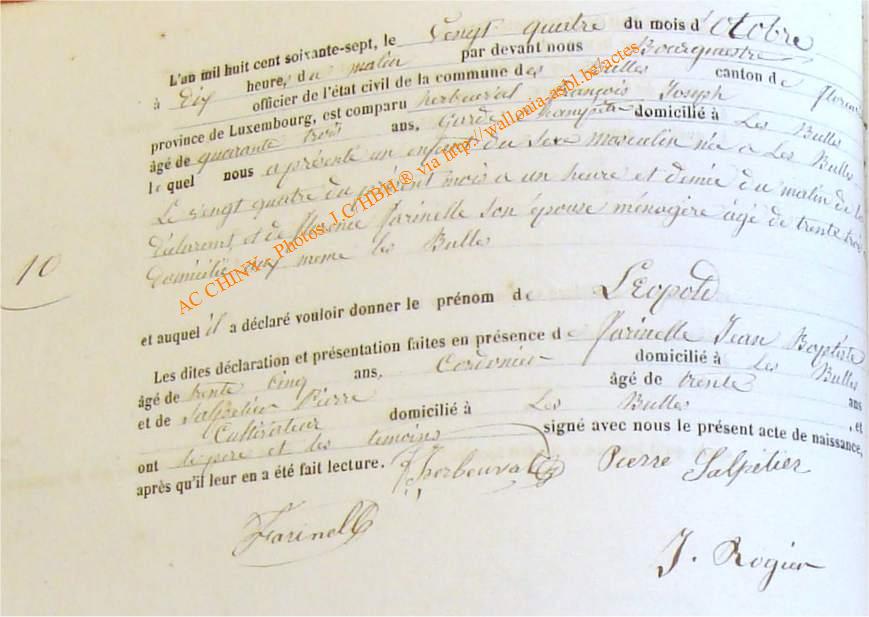 L'an mil huit cent soixante-sept, le Vengt quatre du mois d'Octobre
à Dix heures du matin par devant nous Bourgmestre
officier de l'état civil de la commune des Bulles canton de
province de Luxembourg, est comparu herbeuval François Joseph
âgé de quarante trois ans, Garde Champêtre domicilié à Les Bulles
lequel nous a présenté un enfant du Sexe masculin née a Les Bulles
Le vengt quatre du présent mois a un heure et demie du matin de lui
déclarent, et de Florence Farinelle son épouse ménagère âgé de trente trois
Domicilié aux meme les Bulles
10
et auquel il a déclaré vouloir donner le prénom de Léopold
Les dites déclaration et présentation faites en présence de Farinelle Jean Baptiste
âgé de trente cinq ans, Cordonier domicilié à Les Bulles
et de Salpetier Pierre âgé de trente ans
Cultivateur domicilié à Les Bulles , et
ont le pere et les temoins signé avec nous le présent acte de naissance,
après qu'il leur en a été fait lecture. Jherbeuval Pierre Salpétier
Farinelle
J. Rogier
AC CHINY - Photos J.C HBH ® via http://wallonia-asbl.be/actes